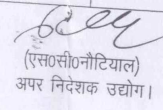 (एस०सी०नौटियाल)
अपर निदेशक उद्योग।